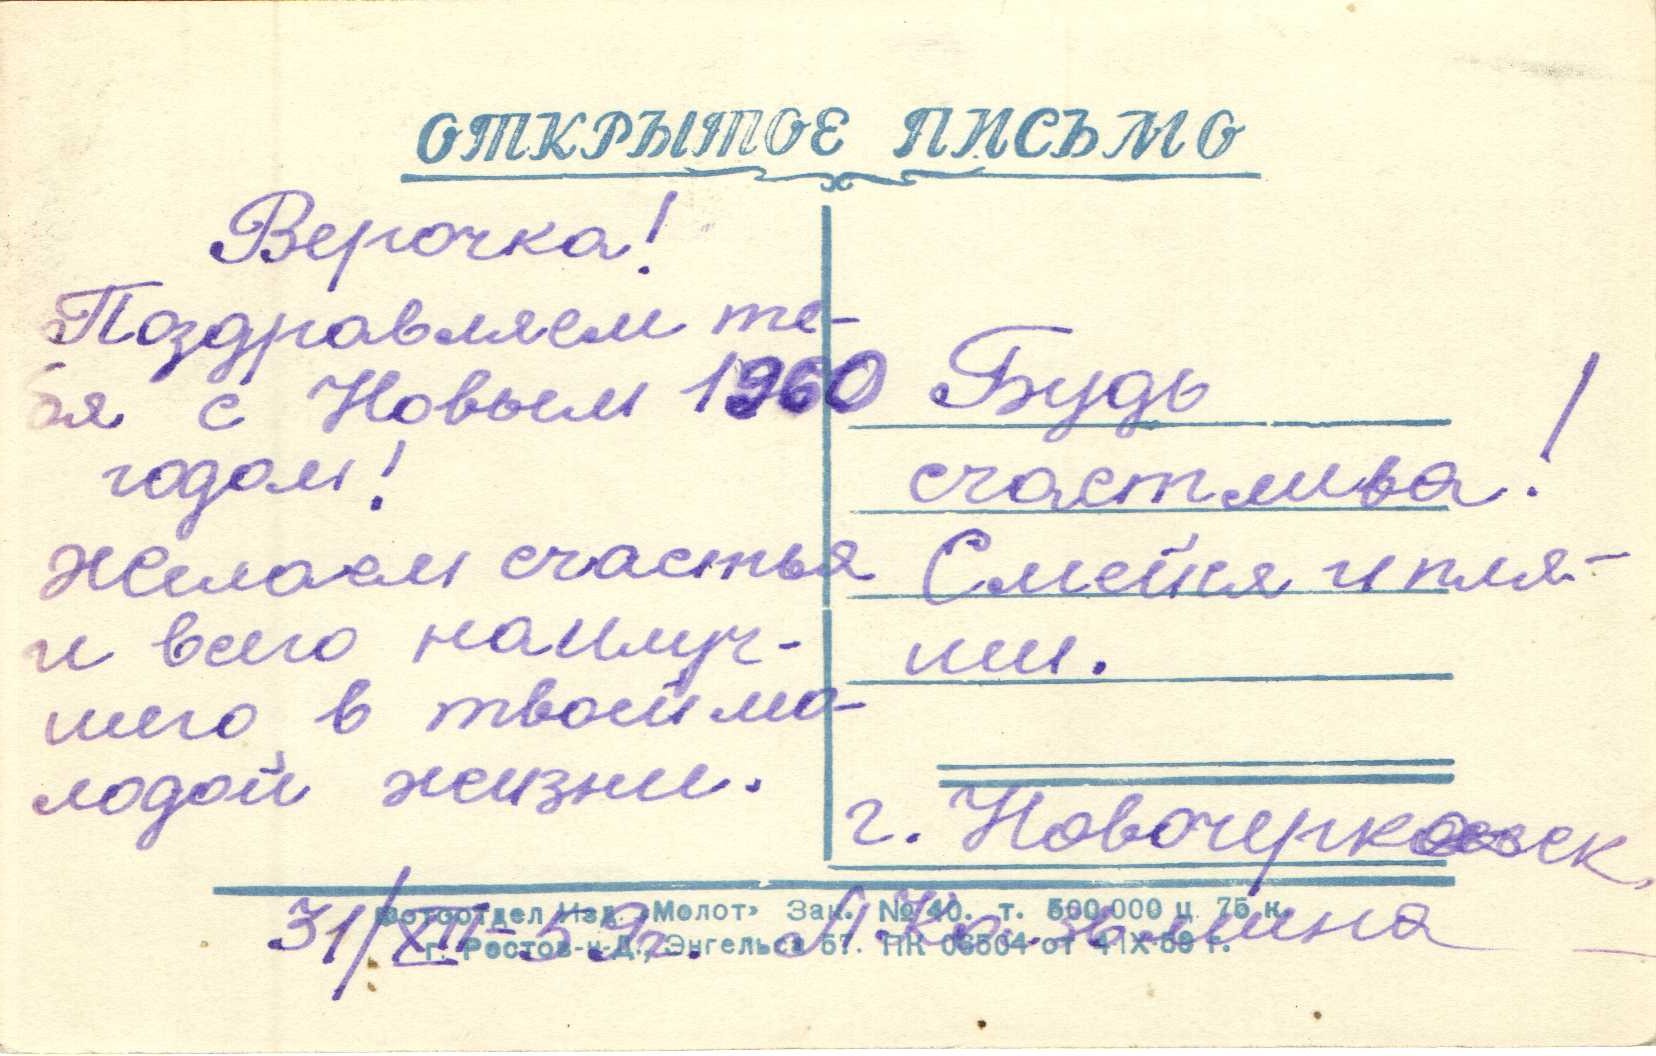 ОТКРЫТОЕ ПИСЬМО
Верочка!
Поздравляем те-
бя с Новым 1960
годом!
Желаем счастья
и всего наилуч-
шего в твоей мо-
лодой жизни.
Будь
счастлива!
Смейся и пля-
ши.
г. Новочеркасск.
31/XII-59г. Л.
Фотоотдел Изд. «Молот» Зак. № 40. т. 500 000 ц 75 к.
г. Ростов-н-Д., Энгельса 57. ПК 06504 от IX-59 г.